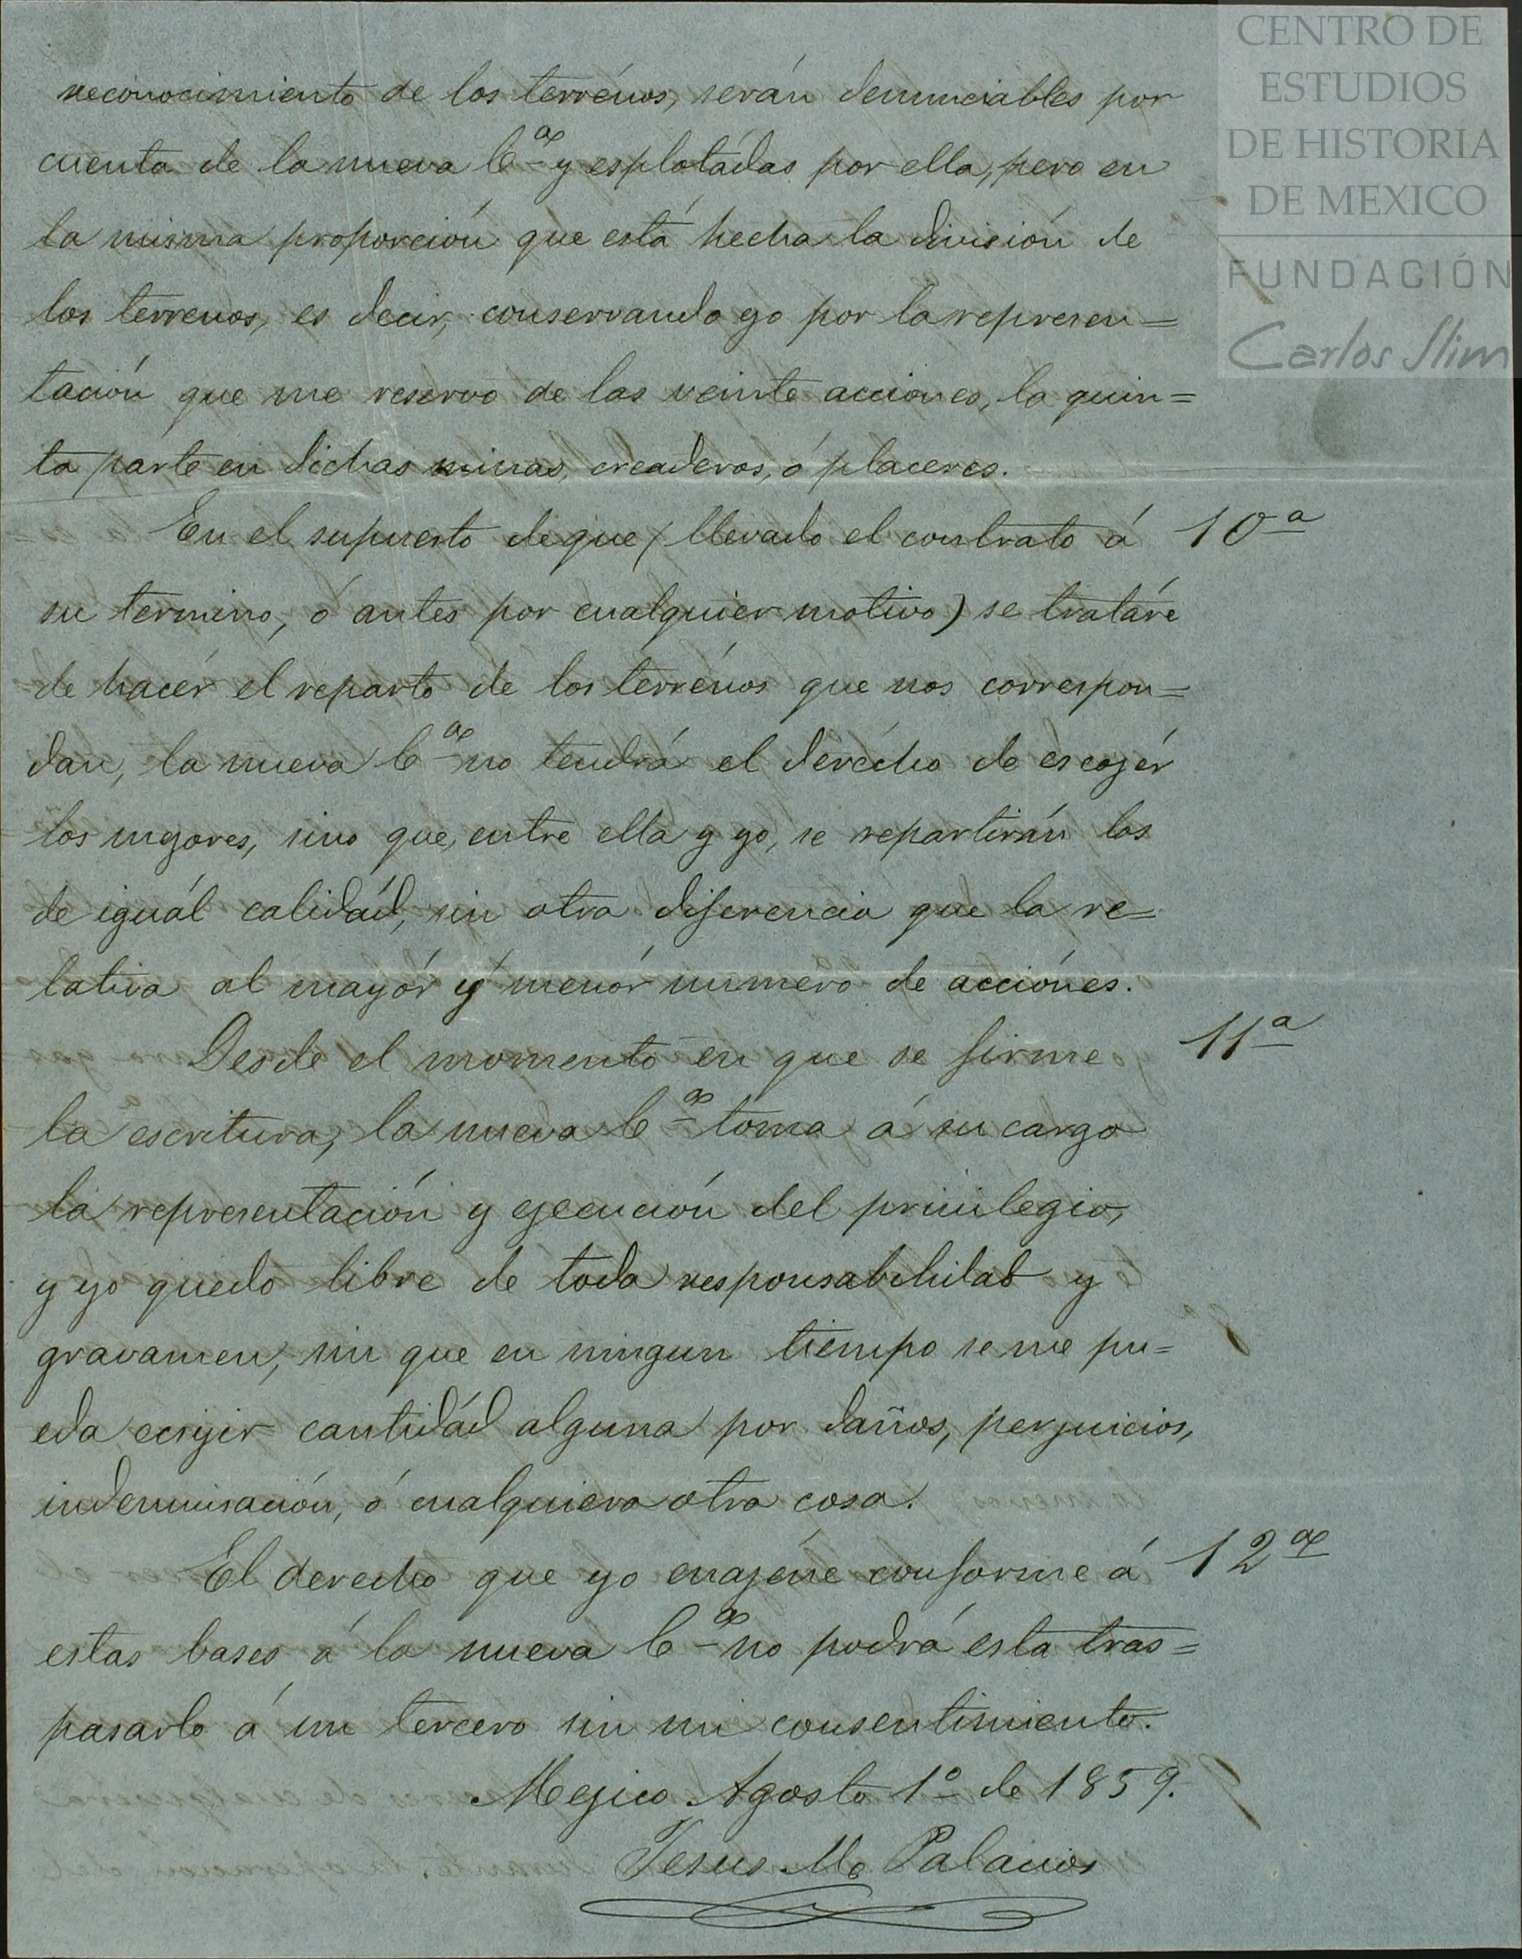 CENTRO DE
ESTUDIOS
DE HISTORIA
DE MEXICO
FUNDACIÓN
Carlos Slim
reconocimiento de los terrénos, serán denunciables por
cuenta de la nueva C.ª y esplotádas por ella, pero en
la misma proporción que está hecha la división de
los terrenos, es decir, conservando yo por la represen=
tación que me reservo de las veinte acciones, la quin=
ta parte en dichas minas, creaderos, ó placeres.
En el supuesto de que (llevado el contrato á 10ª
su termino, ó antes por cualquier motivo) se tratáre
de hacér el reparto de los terrénos que nos correspon=
dan, la nueva C.ª no tendrá el derécho de escojér
los mejores, sino que, entre ella y yo, se repartirán los
de iguál calidád, sin otra diferencia que la re=
lativa al mayór y menór numero de acciónes.
Desde el momento en que se firme 11ª
la escritura, la nueva C.ª toma á su cargo
la representación y ejecución del privilegio,
y yo quedo libre de toda responsabilidad y
gravamen, sin que en ningun tiempo se me pu=
eda ecsijir cantidád alguna por daños, perjuicios,
indemnisación, ó cualquiera otra cosa.
El derecho que yo enajéne conforme á 12ª
estas bases á la nueva C.ª no podrá esta tras=
pasarlo á un tercero sin mi consentimiento.
Mejico Agosto 1º de 1859.
Jesus Mª Palacios